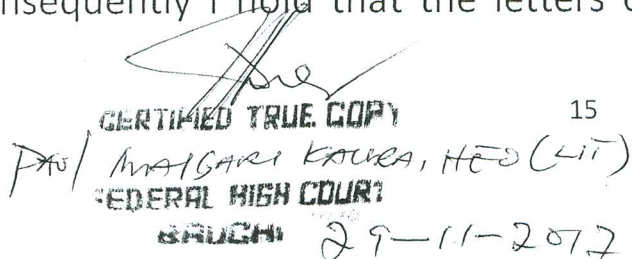 nsequently I hold that the letters o
CERTIFIED TRUE COPY
15
Paul MAIGARI KAURA, HEO (LIT)
FEDERAL HIGH COURT
BAUCHI 29-11-2017